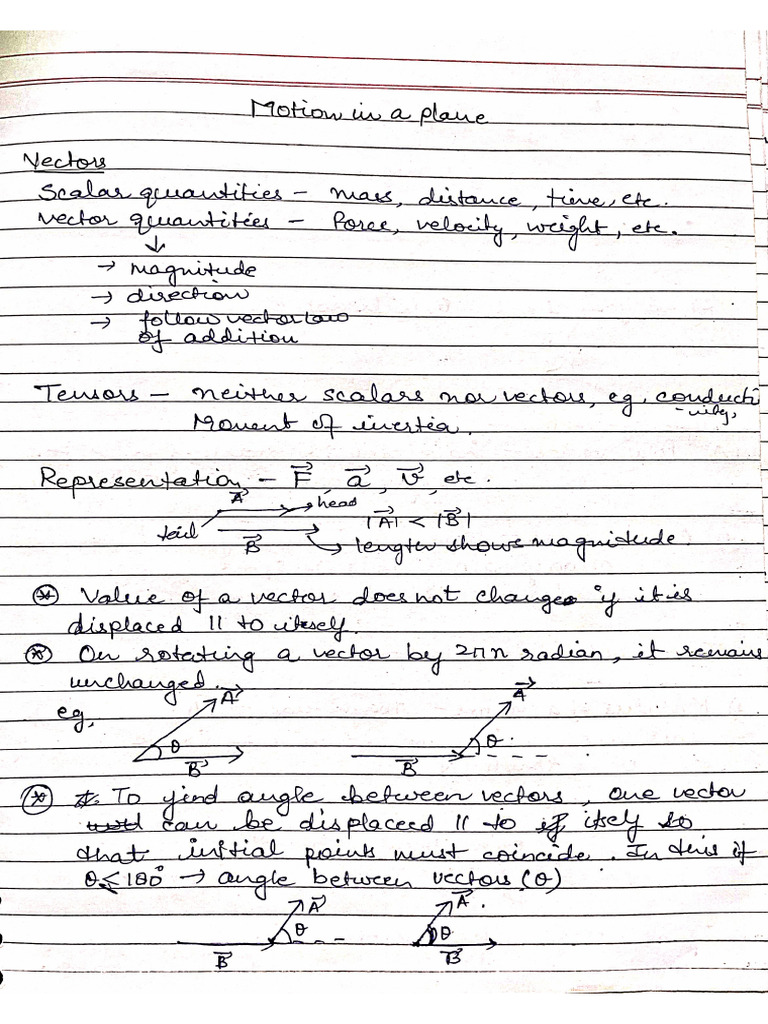 Motion in a plane
Vectors
Scalar quantities - mass, distance, time, etc.
Vector quantities - Force, velocity, weight, etc.
↓
→ magnitude
→ direction
→ follow vector law
of addition
Tensors - neither scalars nor vectors, eg, conducti
-vity,
Moment of inertia.
Representation - F⃗, a⃗, v⃗, etc.
A⃗ → head
tail |A⃗| < |B⃗|
B⃗ → length shows magnitude.
⊛ Value of a vector does not change if it is
displaced || to itself.
⊛ On rotating a vector by 2πn radian, it remains
unchanged.
eg, A⃗ θ B⃗ A⃗ θ B⃗
⊛ To find angle between vectors, one vector
can be displaceed || to itself so
that initial points must coincide. In this if
θ ≤ 180° → angle between vectors (θ)
B⃗ A⃗ θ A⃗ θ B⃗